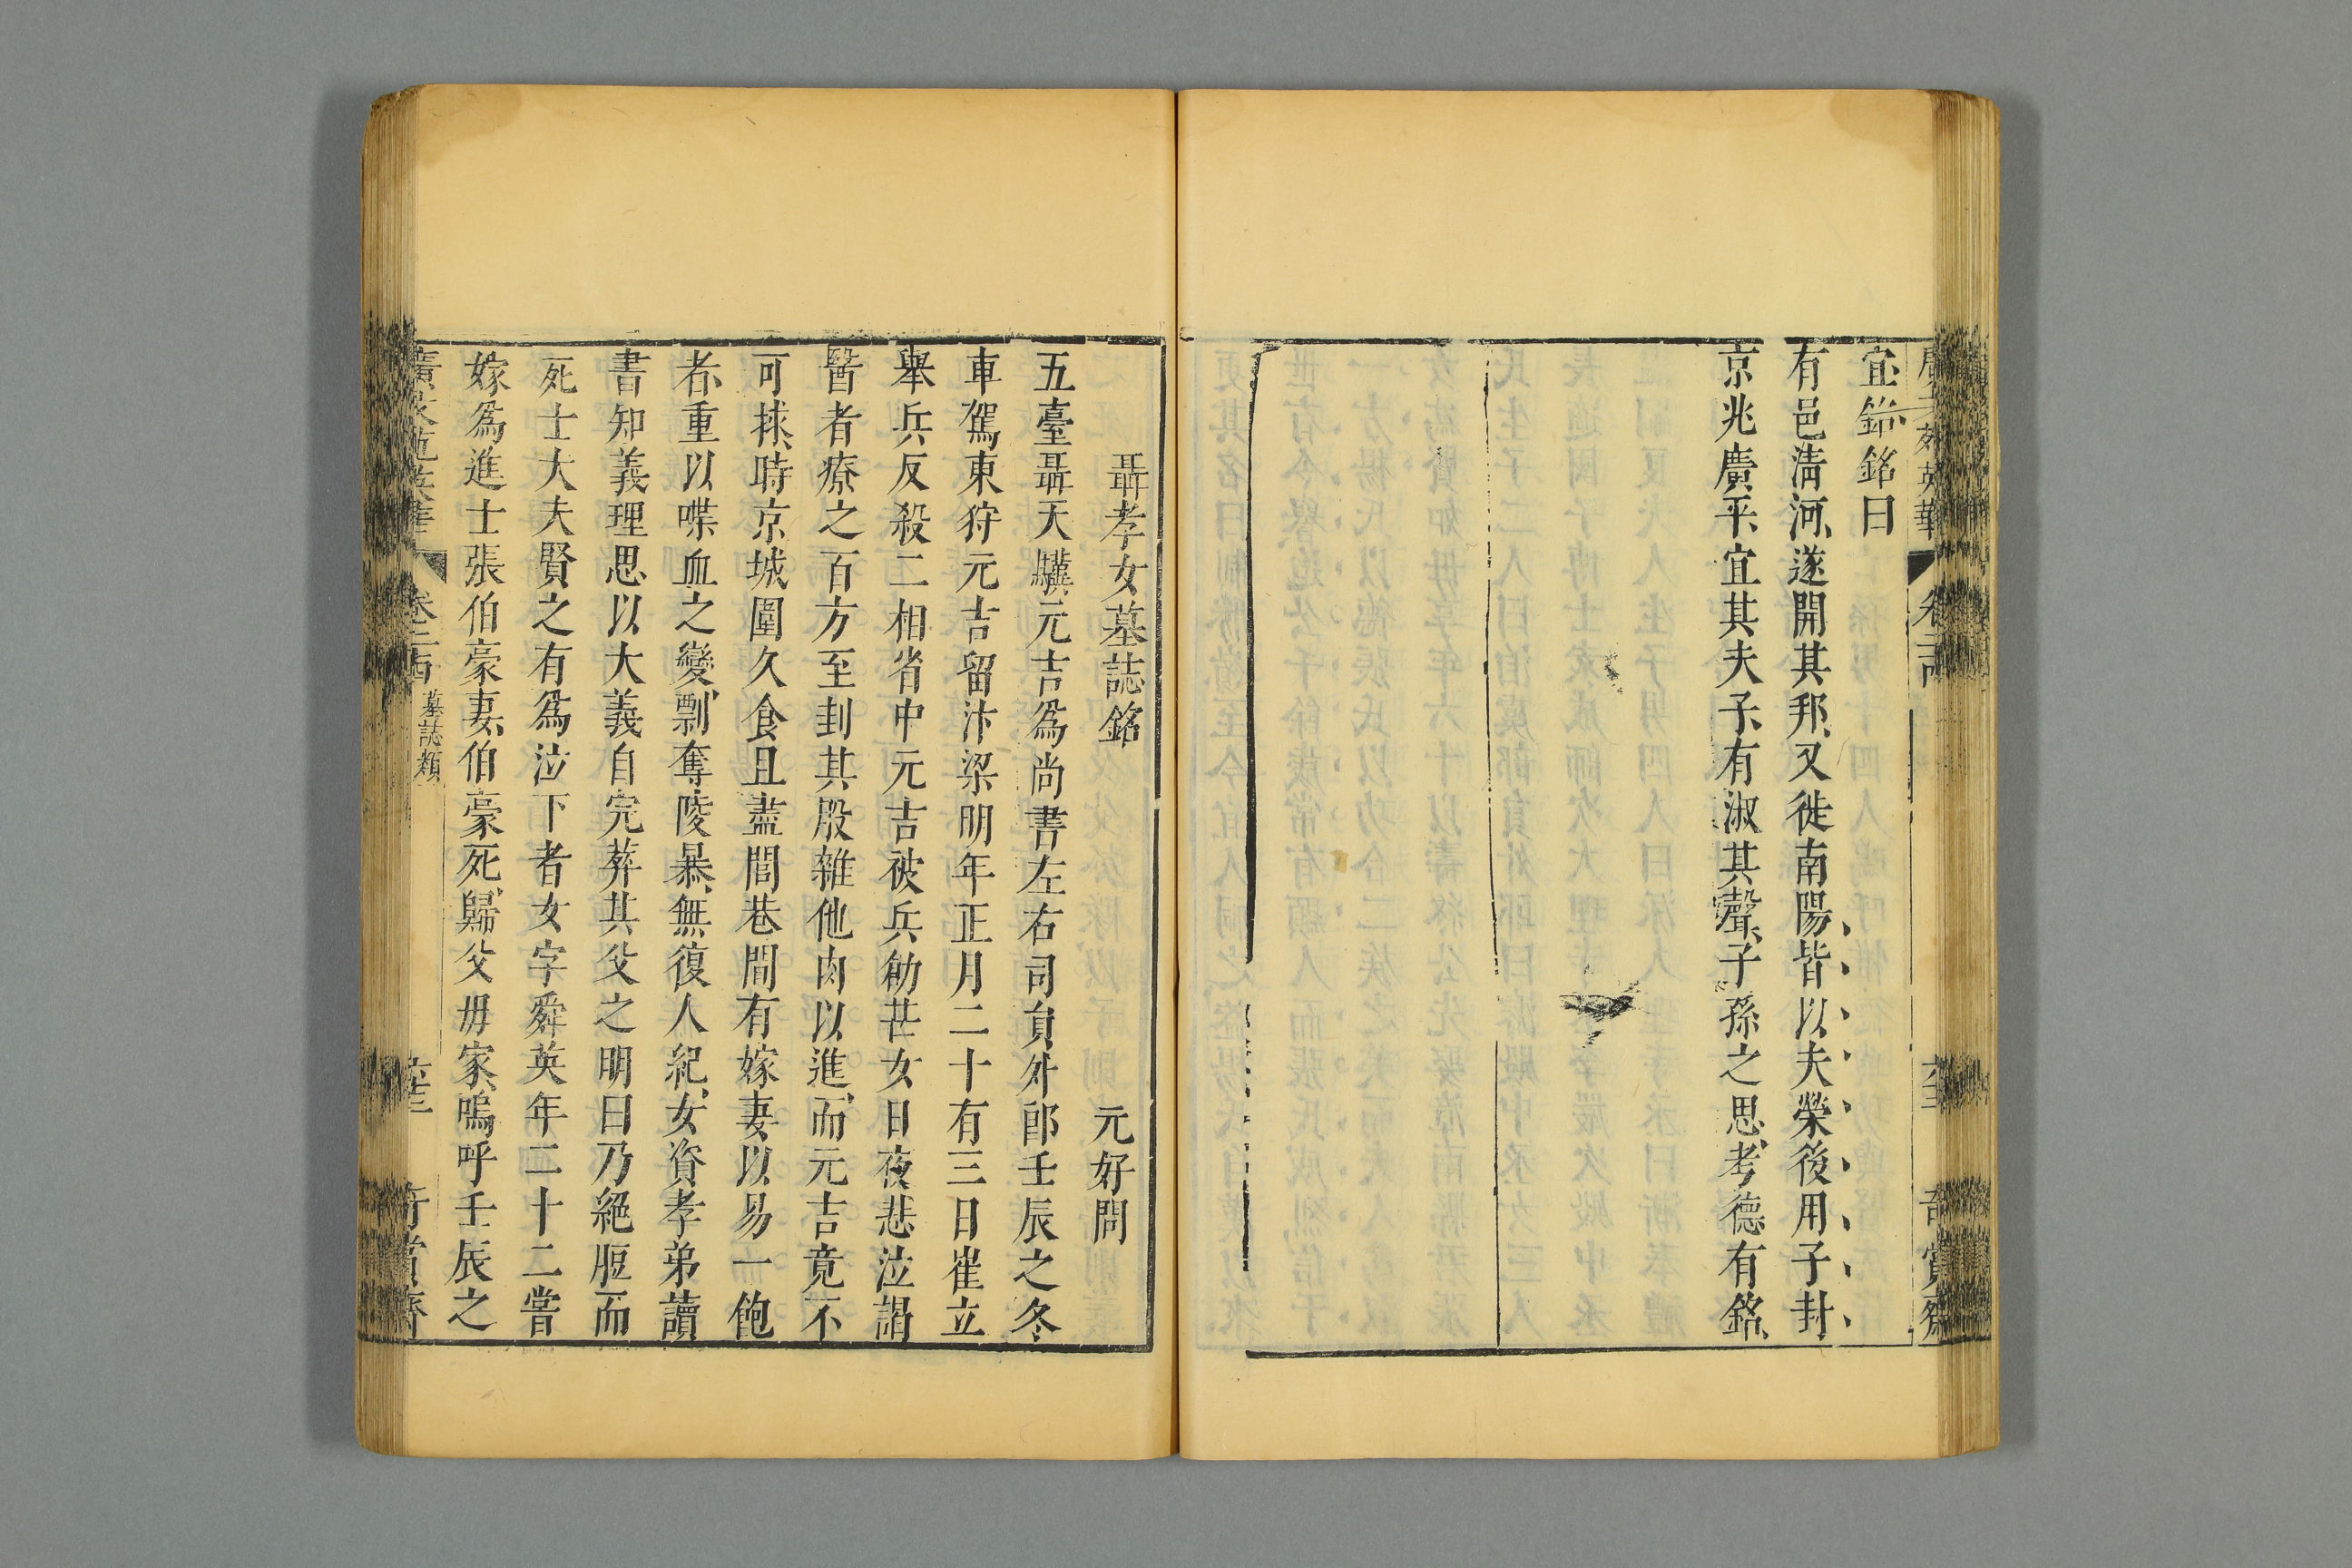 宜銘銘曰
有邑淸河遂開其邦又徙南陽皆以夫榮後用子封
京兆廣平宜其夫子有淑其聲子孫之思考德有銘
聶孝女墓誌銘 元好問
五臺聶天驥元吉爲尚書左右司員外郎壬辰之冬
車駕東狩元吉留汴梁明年正月二十有三日崔立
舉兵反殺二相省中元吉被兵創甚女日夜悲泣謁
醫者療之百方至刲其股雜他肉以進而元吉竟不
可捄時京城圍久食且盡閭巷間有嫁妻以易一飽
者重以喋血之變剽奪陵暴無復人紀女資孝弟讀
書知義理思以大義自完葬其父之明日乃絕脰而
死士大夫賢之有爲泣下者女字舜英年二十二嘗
嫁爲進士張伯豪妻伯豪死歸父毋家嗚呼壬辰之
墓誌類